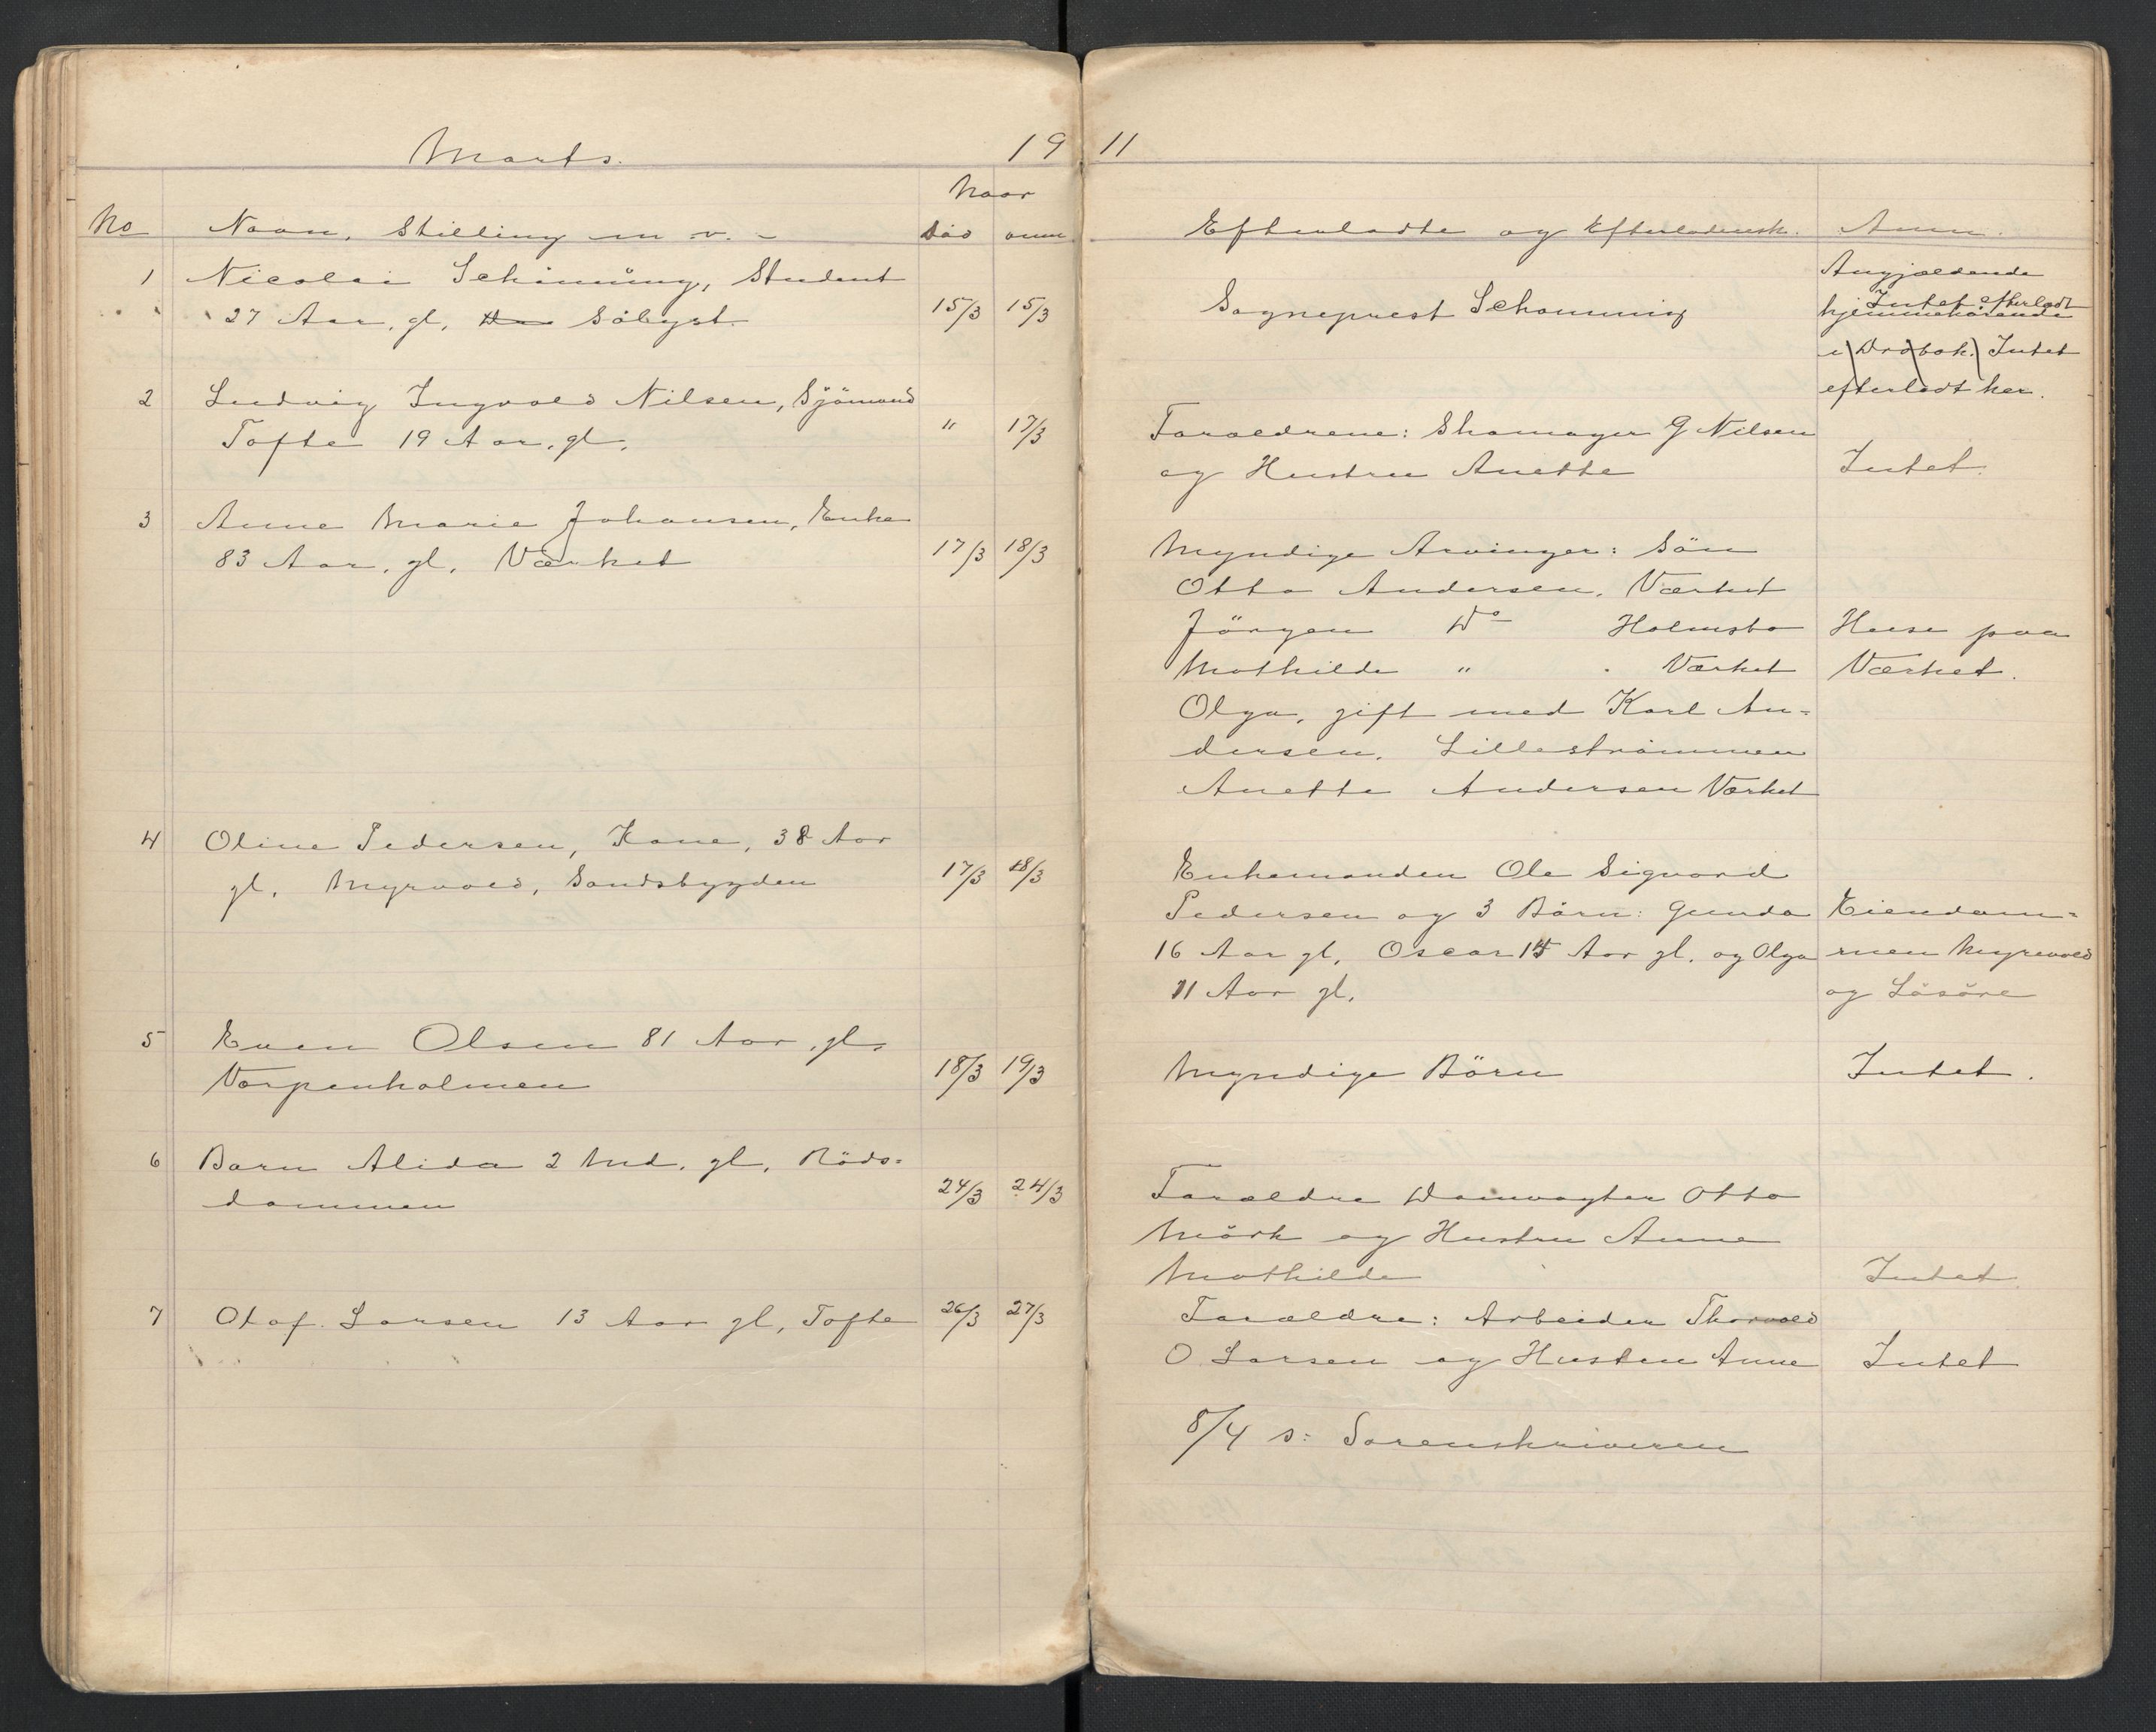 Marts. 19 11
Naar
No Navn, Stilling m. v. - död anm. Efterladte og Efterladensk. Anm.
1 Nicolai Schönning, Student Angjældende
27 Aar, gl, Söbyst. 15/3 15/3 Sogneprest Schønning hjemmehørende
Intet efterladt
i Drøbak. Intet
efterladt her.
2 Ludvig Ingvald Nilsen, Sjömand
Tofte 19 Aar, gl. " 17/3 Forældrene: Skomager G Nilsen
og Hustru Anette Intet.
3 Anne Marie Johansen, Enke
83 Aar, gl, Værket 17/3 18/3 Myndige Arvinger: Sön
Otto Andersen, Værket
Jörgen Do Holmsbo Huse paa
Mathilde " . Værket Værket.
Olga, gift med Karl An-
dersen, Lilleströmmen
Anette Andersen Værket
4 Oline Pedersen, Kone, 38 Aar
gl, Myrvold, Sandsbygden 17/3 18/3 Enkemanden Ole Sigvard
Pedersen og 3 Börn: Gunda Eiendom-
16 Aar gl, Oscar 14 Aar gl. og Olga men Myrevold
11 Aar gl. og Lösöre
5 Even Olsen 81 Aar, gl,
Varpenholmen 18/3 19/3 Myndige Börn Intet.
6 Barn Alida 2 Md. gl, Röds-
dammen 24/3 24/3 Forældre Damvogter Otto
Mörk og Hustru Anna
Mathilde Intet
7 Olaf Larsen 13 Aar gl, Tofte 26/3 27/3 Forældre: Arbeider Thorvald
O. Larsen og Hustru Anne Intet
8/4 s: Sorenskriveren